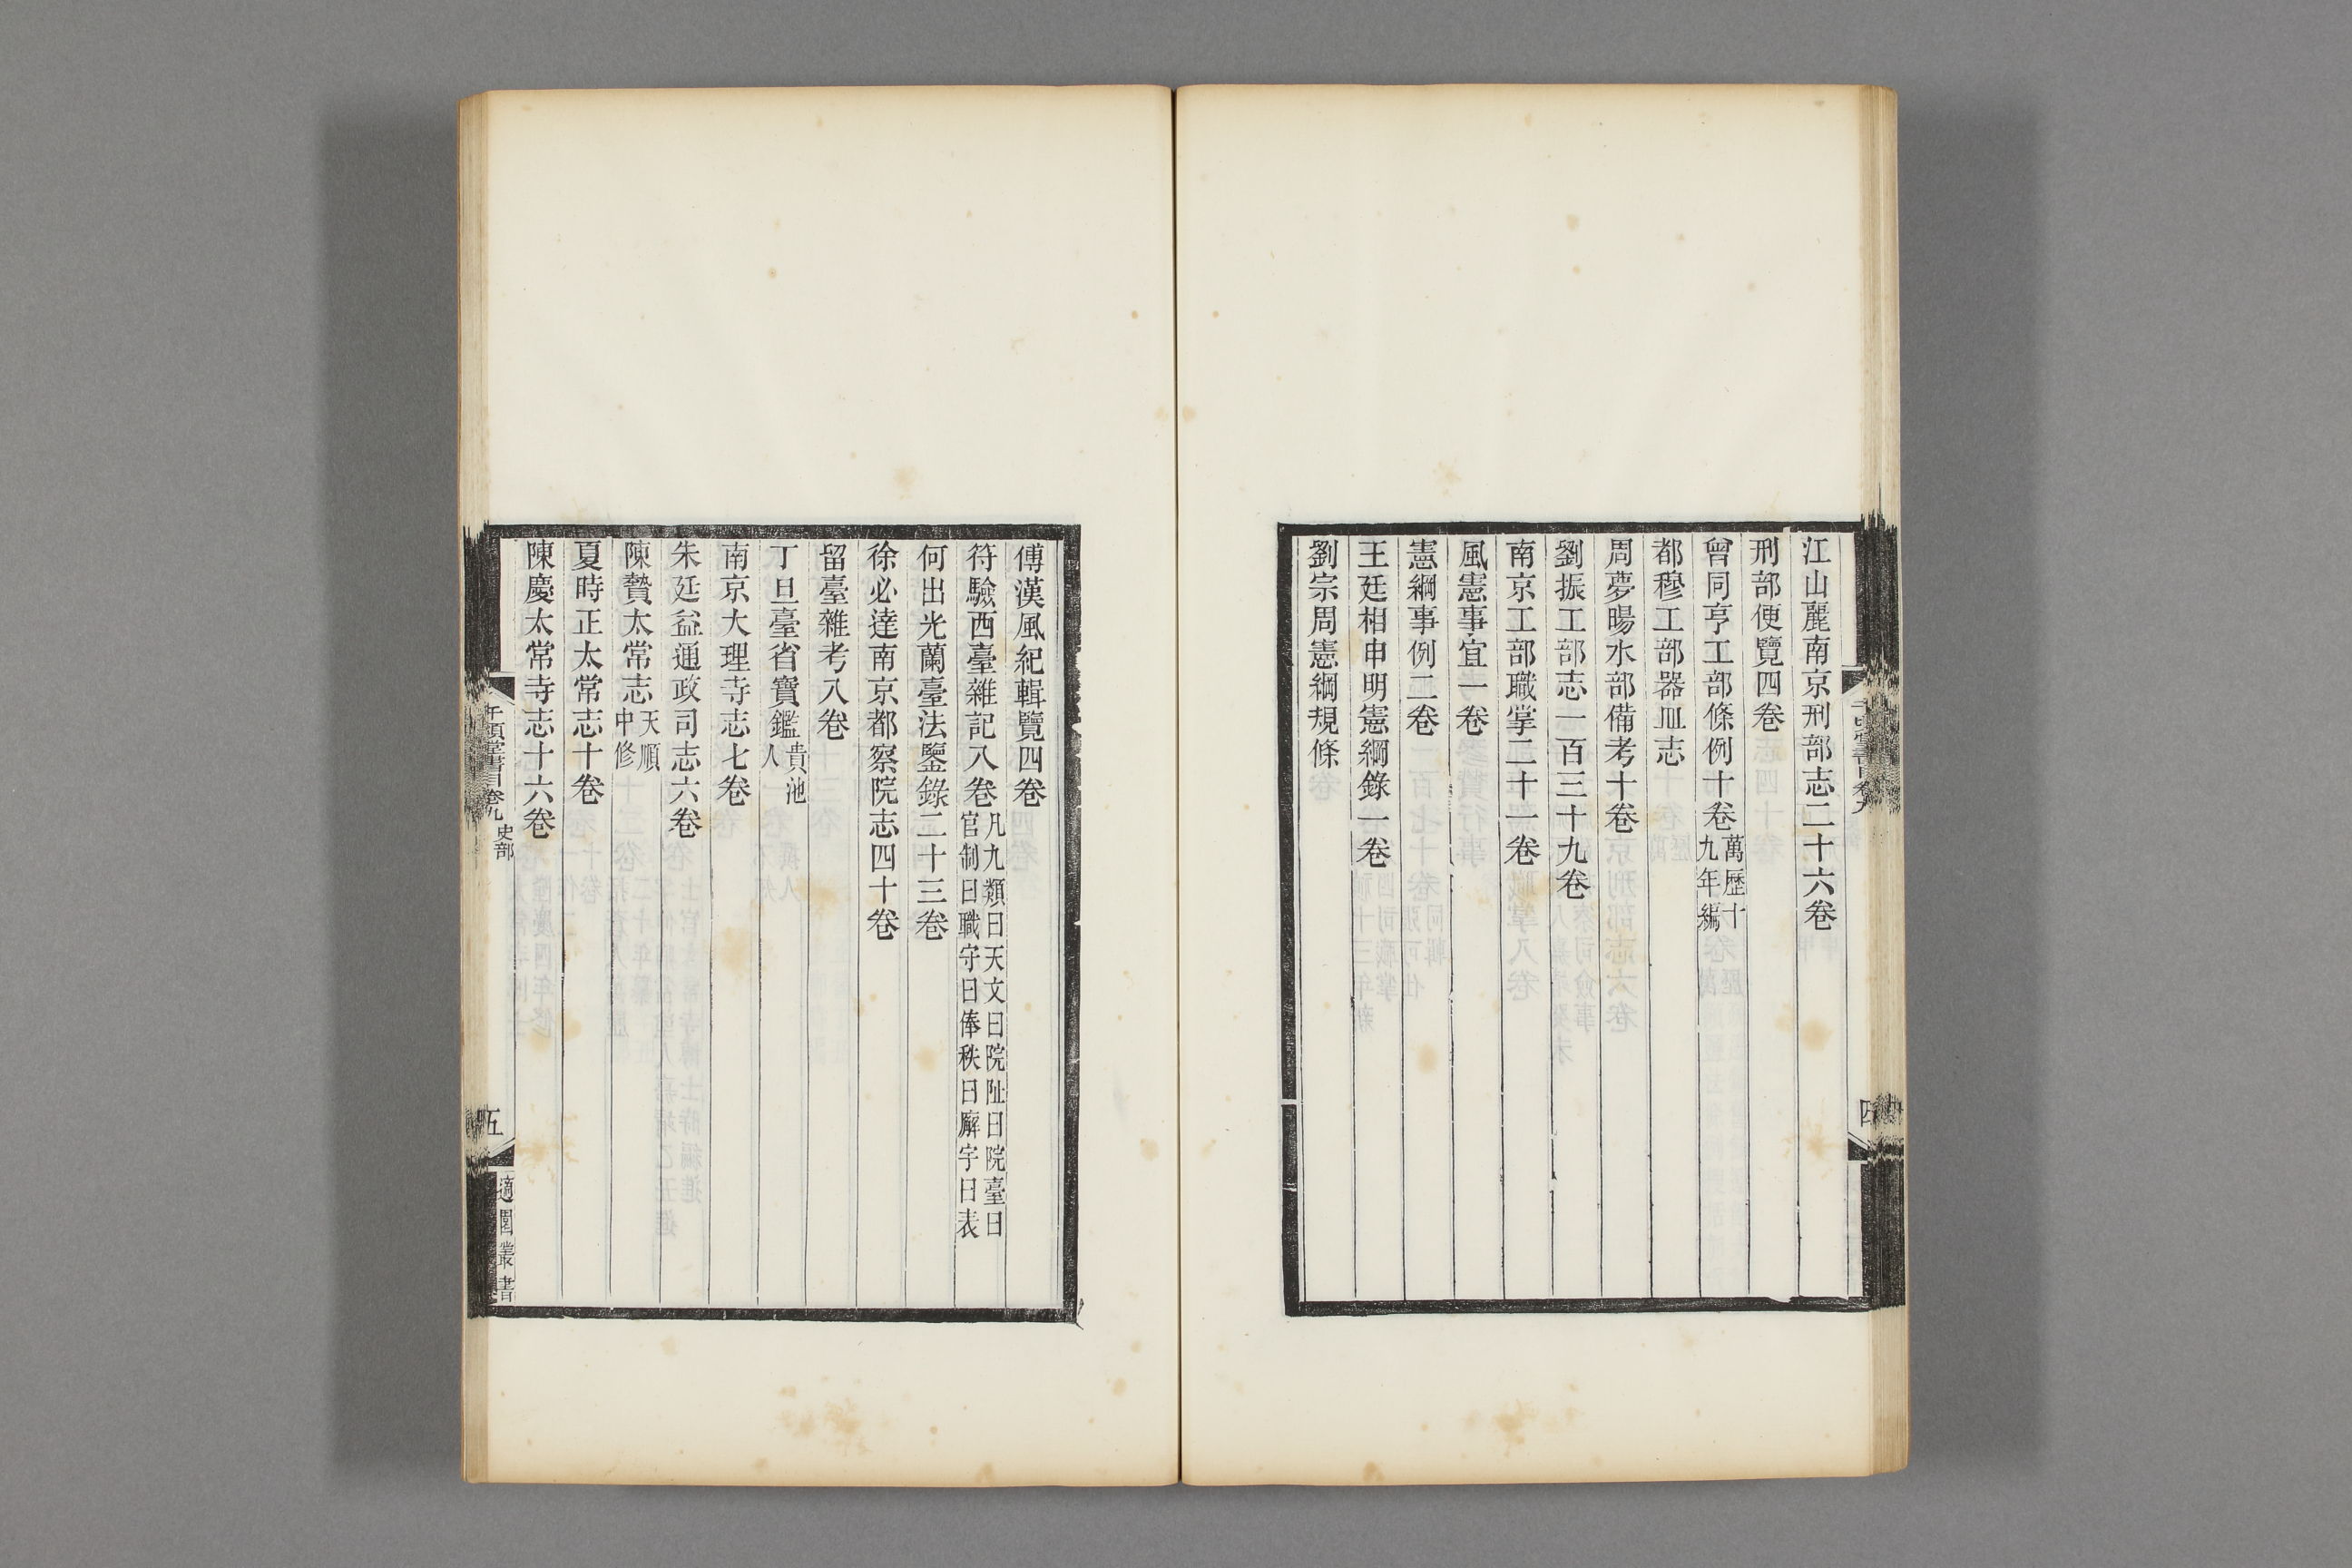 江山麗南京刑部志二十六卷
刑部便覽四卷
曾同亨工部條例十卷萬歷十九年編
都穆工部器皿志
周夢暘水部備考十卷
劉振工部志一百三十九卷
南京工部職掌二十一卷
風憲事宜一卷
憲綱事例二卷
王廷相申明憲綱錄一卷
劉宗周憲綱規條
四
傅漢風紀輯覽四卷
符驗西臺雜記八卷凡九類曰天文曰院阯曰院臺曰
官制曰職守曰俸秩曰廨宇曰表
何出光蘭臺法鑒錄二十三卷
徐必達南京都察院志四十卷
留臺雜考八卷
丁旦臺省寶鑑貴池人
南京大理寺志七卷
朱廷益通政司志六卷
陳贄太常志天順中修
夏時正太常志十卷
陳慶太常寺志十六卷
千頃堂書目卷九 史部
五
適園叢書